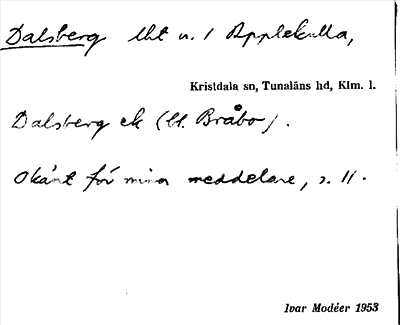 Dalsberg lht u. 1 Applekulla,
Kristdala sn, Tunaläns hd, Klm. l.
Dalsberg ek (bl. Bråbo).
Okänt för mina meddelare, s. 11.
Ivar Modéer 1953